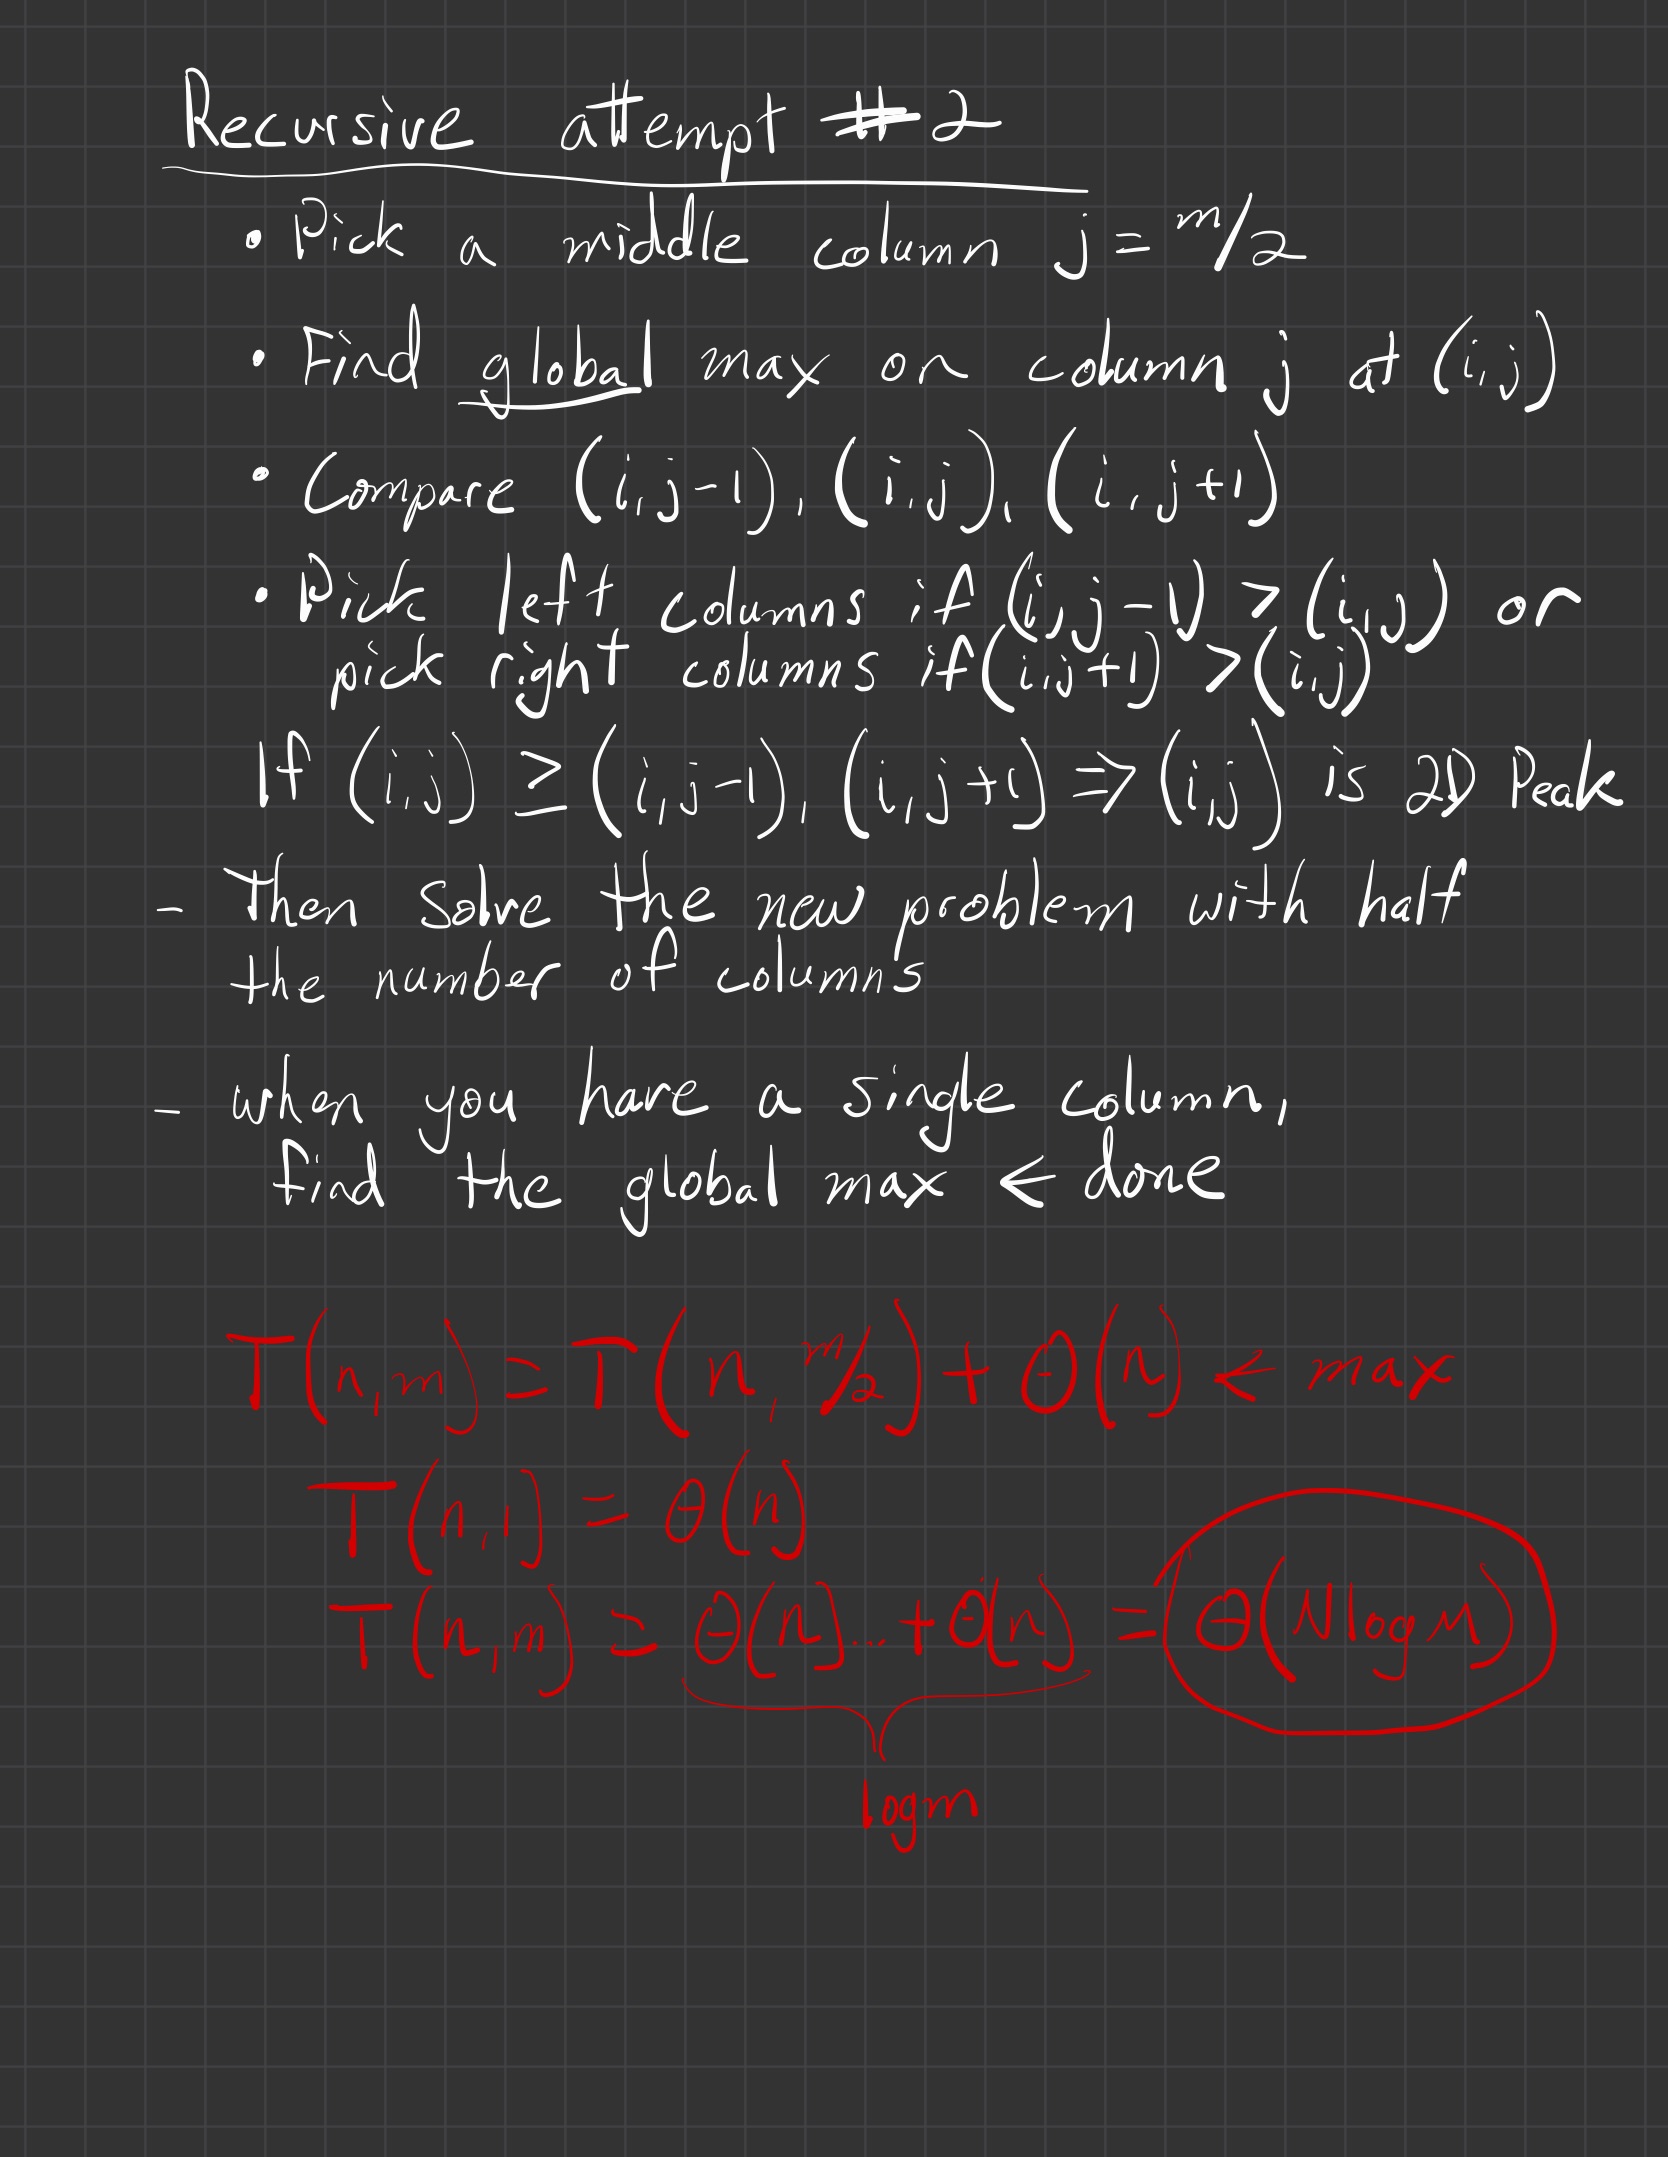 Recursive attempt #2
• Pick a middle column j = m/2
• Find global max on column j at (i,j)
• Compare (i,j-1), (i,j), (i,j+1)
• Pick left columns if (i,j-1) > (i,j) or
pick right columns if (i,j+1) > (i,j)
If (i,j) ≥ (i,j-1), (i,j+1) ⇒ (i,j) is 2D Peak
- Then solve the new problem with half
the number of columns
- when you have a single column,
find the global max ← done
T(n,m) = T(n, m/2) + Θ(n) ← max
T(n,1) = Θ(n)
T(n,m) = Θ(n)... + Θ(n) = Θ(N log M)
log m